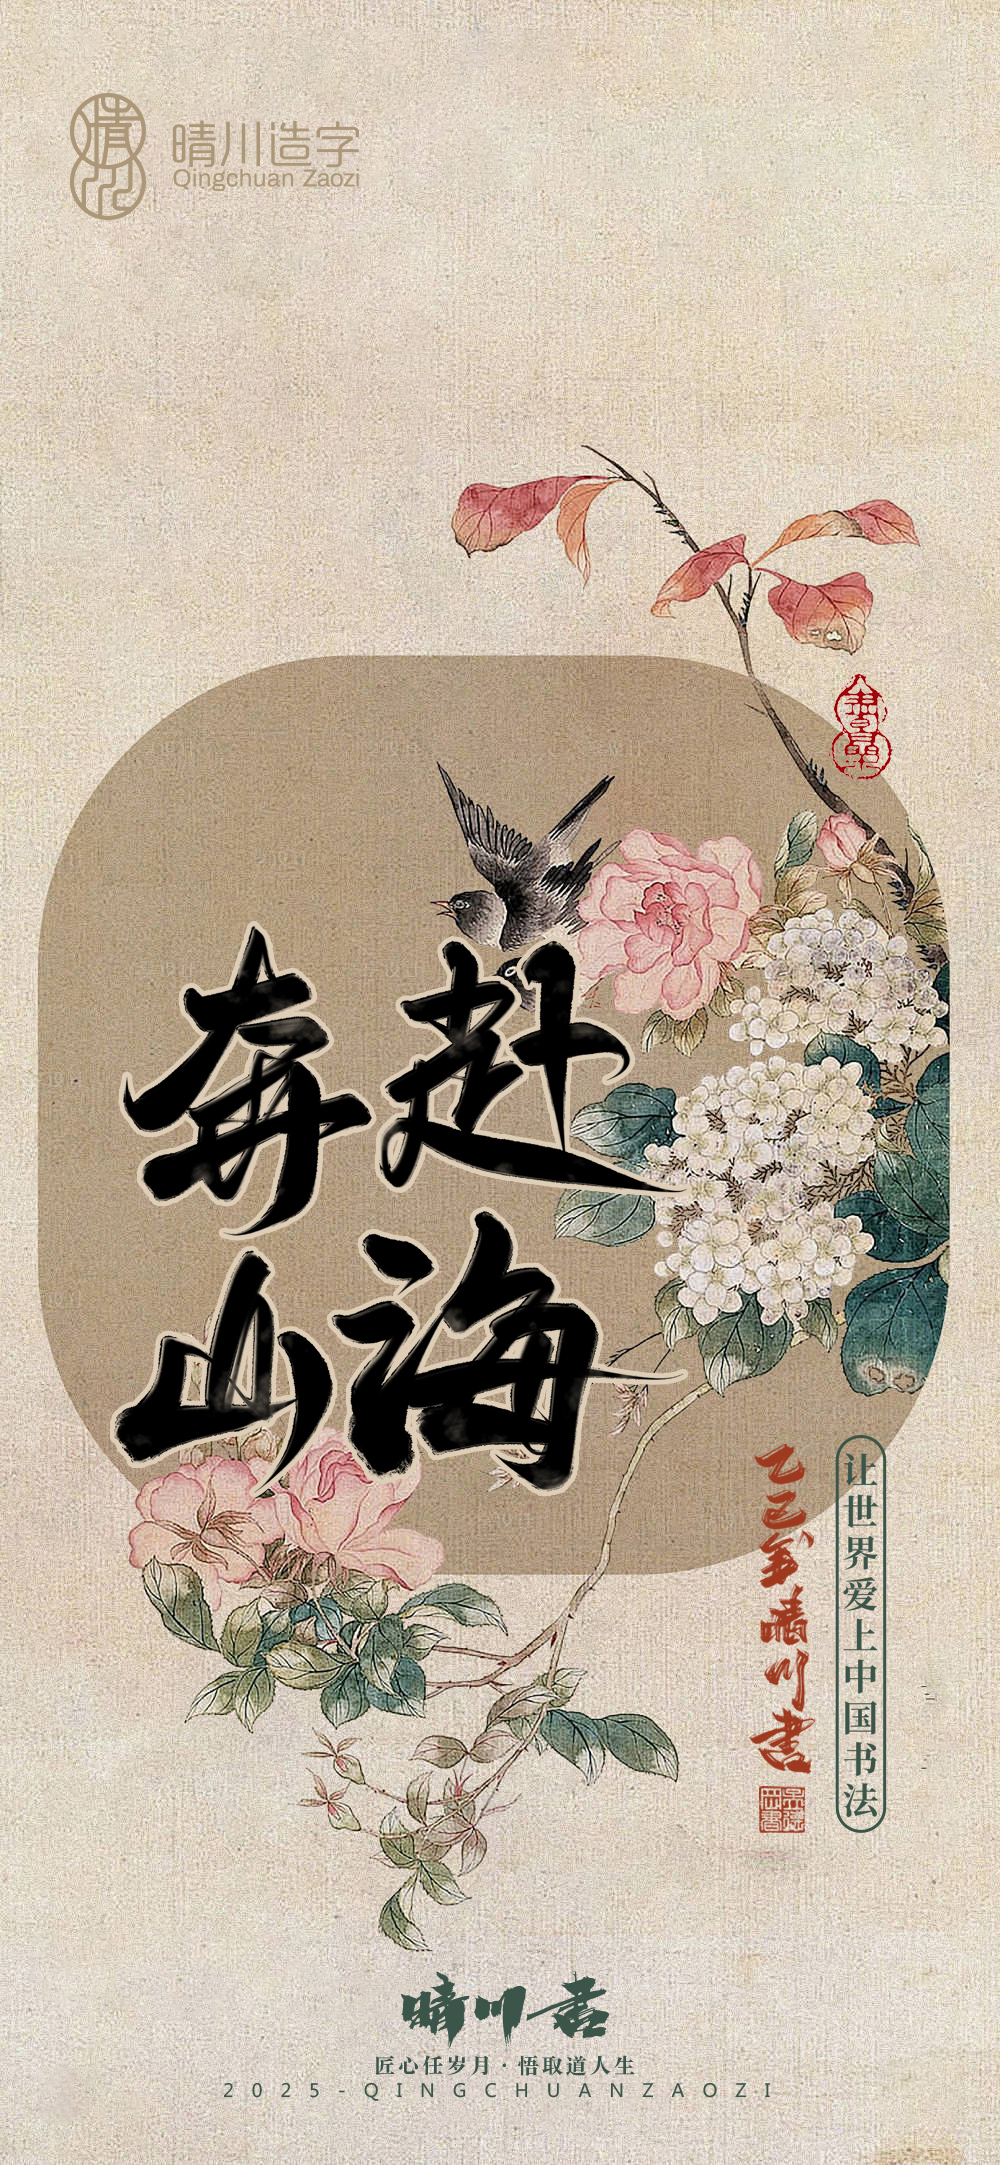 晴川造字
Qingchuan Zaozi
奔赴
山海
乙巳年晴川书
让世界爱上中国书法
晴川书
匠心任岁月·悟取道人生
2025-QINGCHUANZAOZI